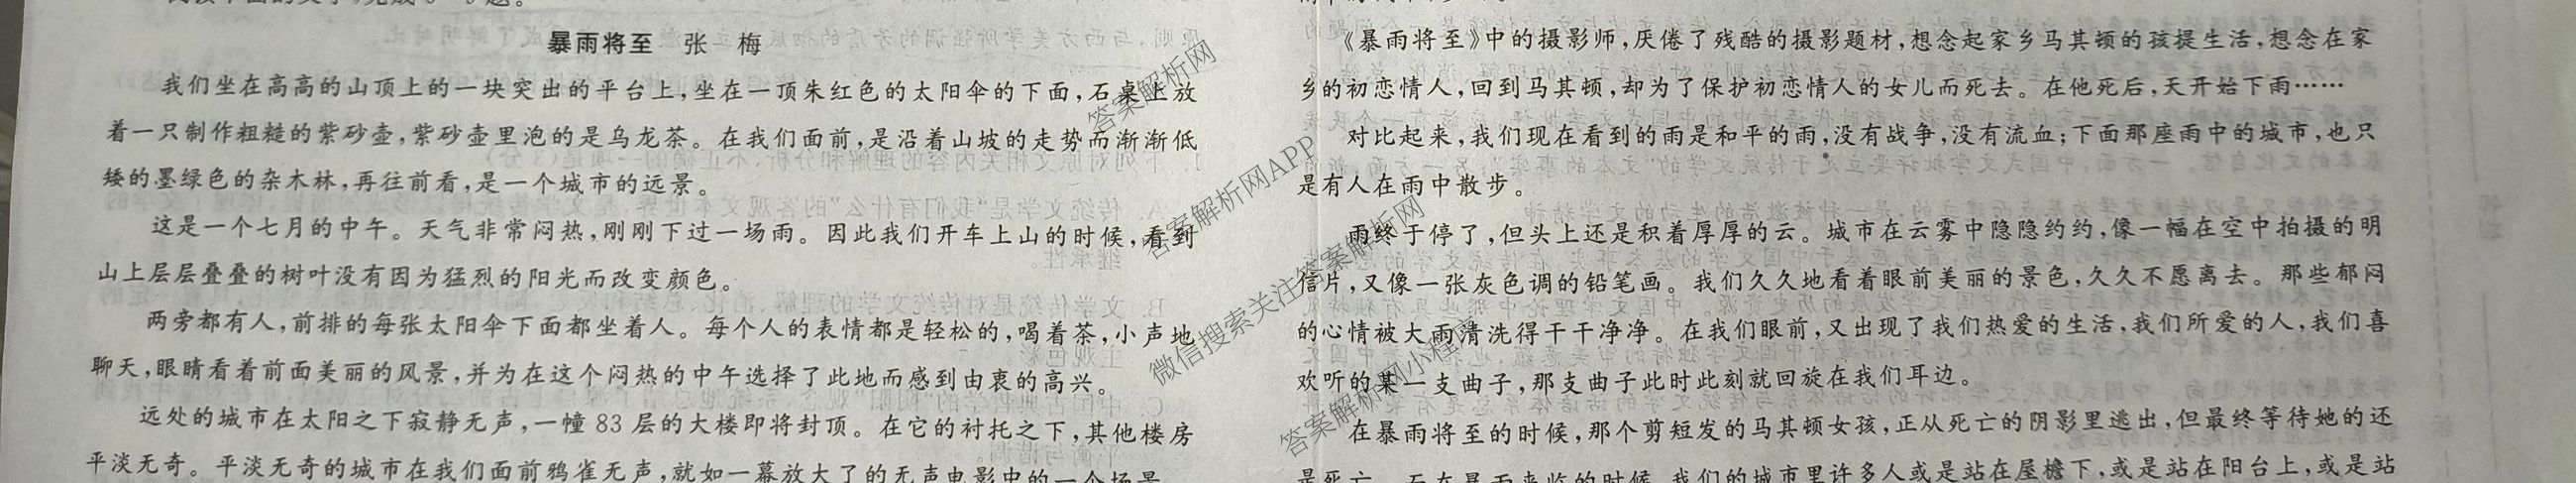 暴雨将至 张 梅
我们坐在高高的山顶上的一块突出的平台上，坐在一顶朱红色的太阳伞的下面，石桌上放
着一只制作粗糙的紫砂壶，紫砂壶里泡的是乌龙茶。在我们面前，是沿着山坡的走势而渐渐低
矮的墨绿色的杂木林，再往前看，是一个城市的远景。
这是一个七月的中午。天气非常闷热，刚刚下过一场雨。因此我们开车上山的时候，看到
山上层层叠叠的树叶没有因为猛烈的阳光而改变颜色。
两旁都有人，前排的每张太阳伞下面都坐着人。每个人的表情都是轻松的，喝着茶，小声地
聊天，眼睛看着前面美丽的风景，并为在这个闷热的中午选择了此地而感到由衷的高兴。
远处的城市在太阳之下寂静无声，一幢 83 层的大楼即将封顶。在它的衬托之下，其他楼房
平淡无奇。平淡无奇的城市在我们面前鸦雀无声，就如一幕放大了的无声电影中的一个场景。
《暴雨将至》中的摄影师，厌倦了残酷的摄影题材，想念起家乡马其顿的孩提生活，想念在家
乡的初恋情人，回到马其顿，却为了保护初恋情人的女儿而死去。在他死后，天开始下雨……
对比起来，我们现在看到的雨是和平的雨，没有战争，没有流血；下面那座雨中的城市，也只
是有人在雨中散步。
雨终于停了，但头上还是积着厚厚的云。城市在云雾中隐隐约约，像一幅在空中拍摄的明
信片，又像一张灰色调的铅笔画。我们久久地看着眼前美丽的景色，久久不愿离去。那些郁闷
的心情被大雨清洗得干干净净。在我们眼前，又出现了我们热爱的生活，我们所爱的人，我们喜
欢听的某一支曲子，那支曲子此时此刻就回旋在我们耳边。
在暴雨将至的时候，那个剪短发的马其顿女孩，正从死亡的阴影里逃出，但最终等待她的还
是死亡。而在暴雨来临的时候，我们的城市里许多人或是站在屋檐下，或是站在阳台上，或是站
答案解析网
答案解析网APP
微信搜索关注答案解析网
答案解析网小程序